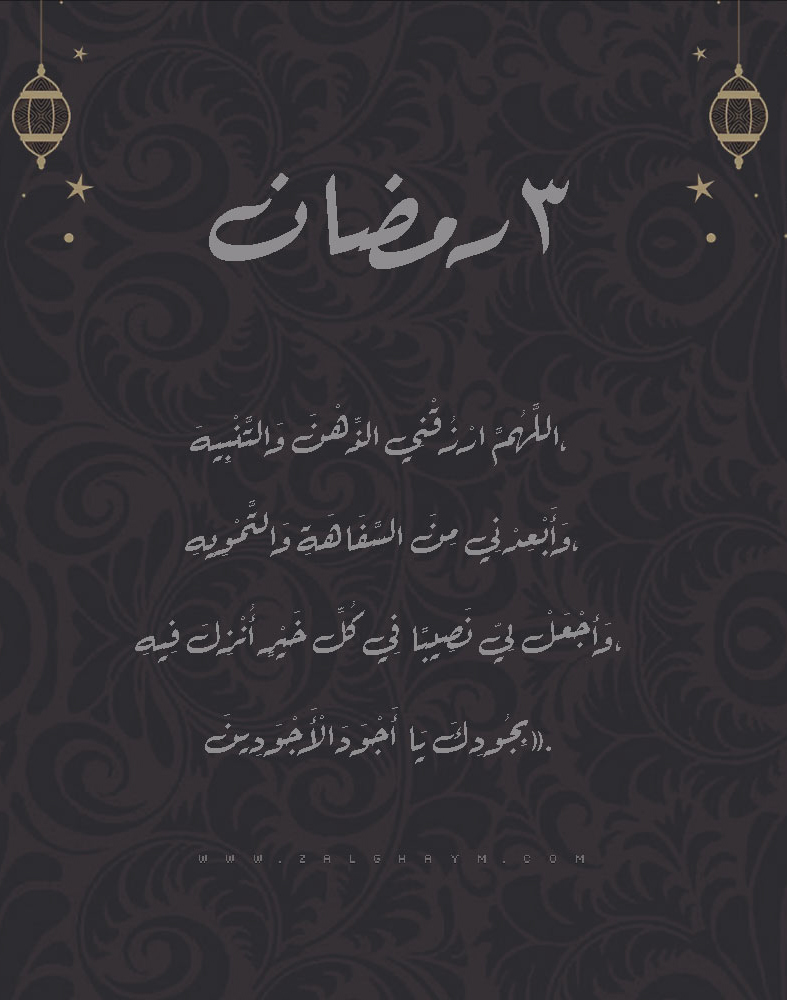 ٣ رمضان
اللَّهُمَّ ارْزُقْني الذِّهْنَ وَالتَّنْبِيهَ،
وَأَبْعِدْنِي مِنَ السَّفَاهَةِ وَالتَّمْوِيهِ،
وَأجْعَلْ لِيّ نَصِيبًا فِي كُلِّ خَيْرٍ أُنْزِلَ فِيهِ،
بِجُودِكَ يَا أَجْوَدَ الْأَجْوَدِينَ».
WWW.ZALGHAYM.COM